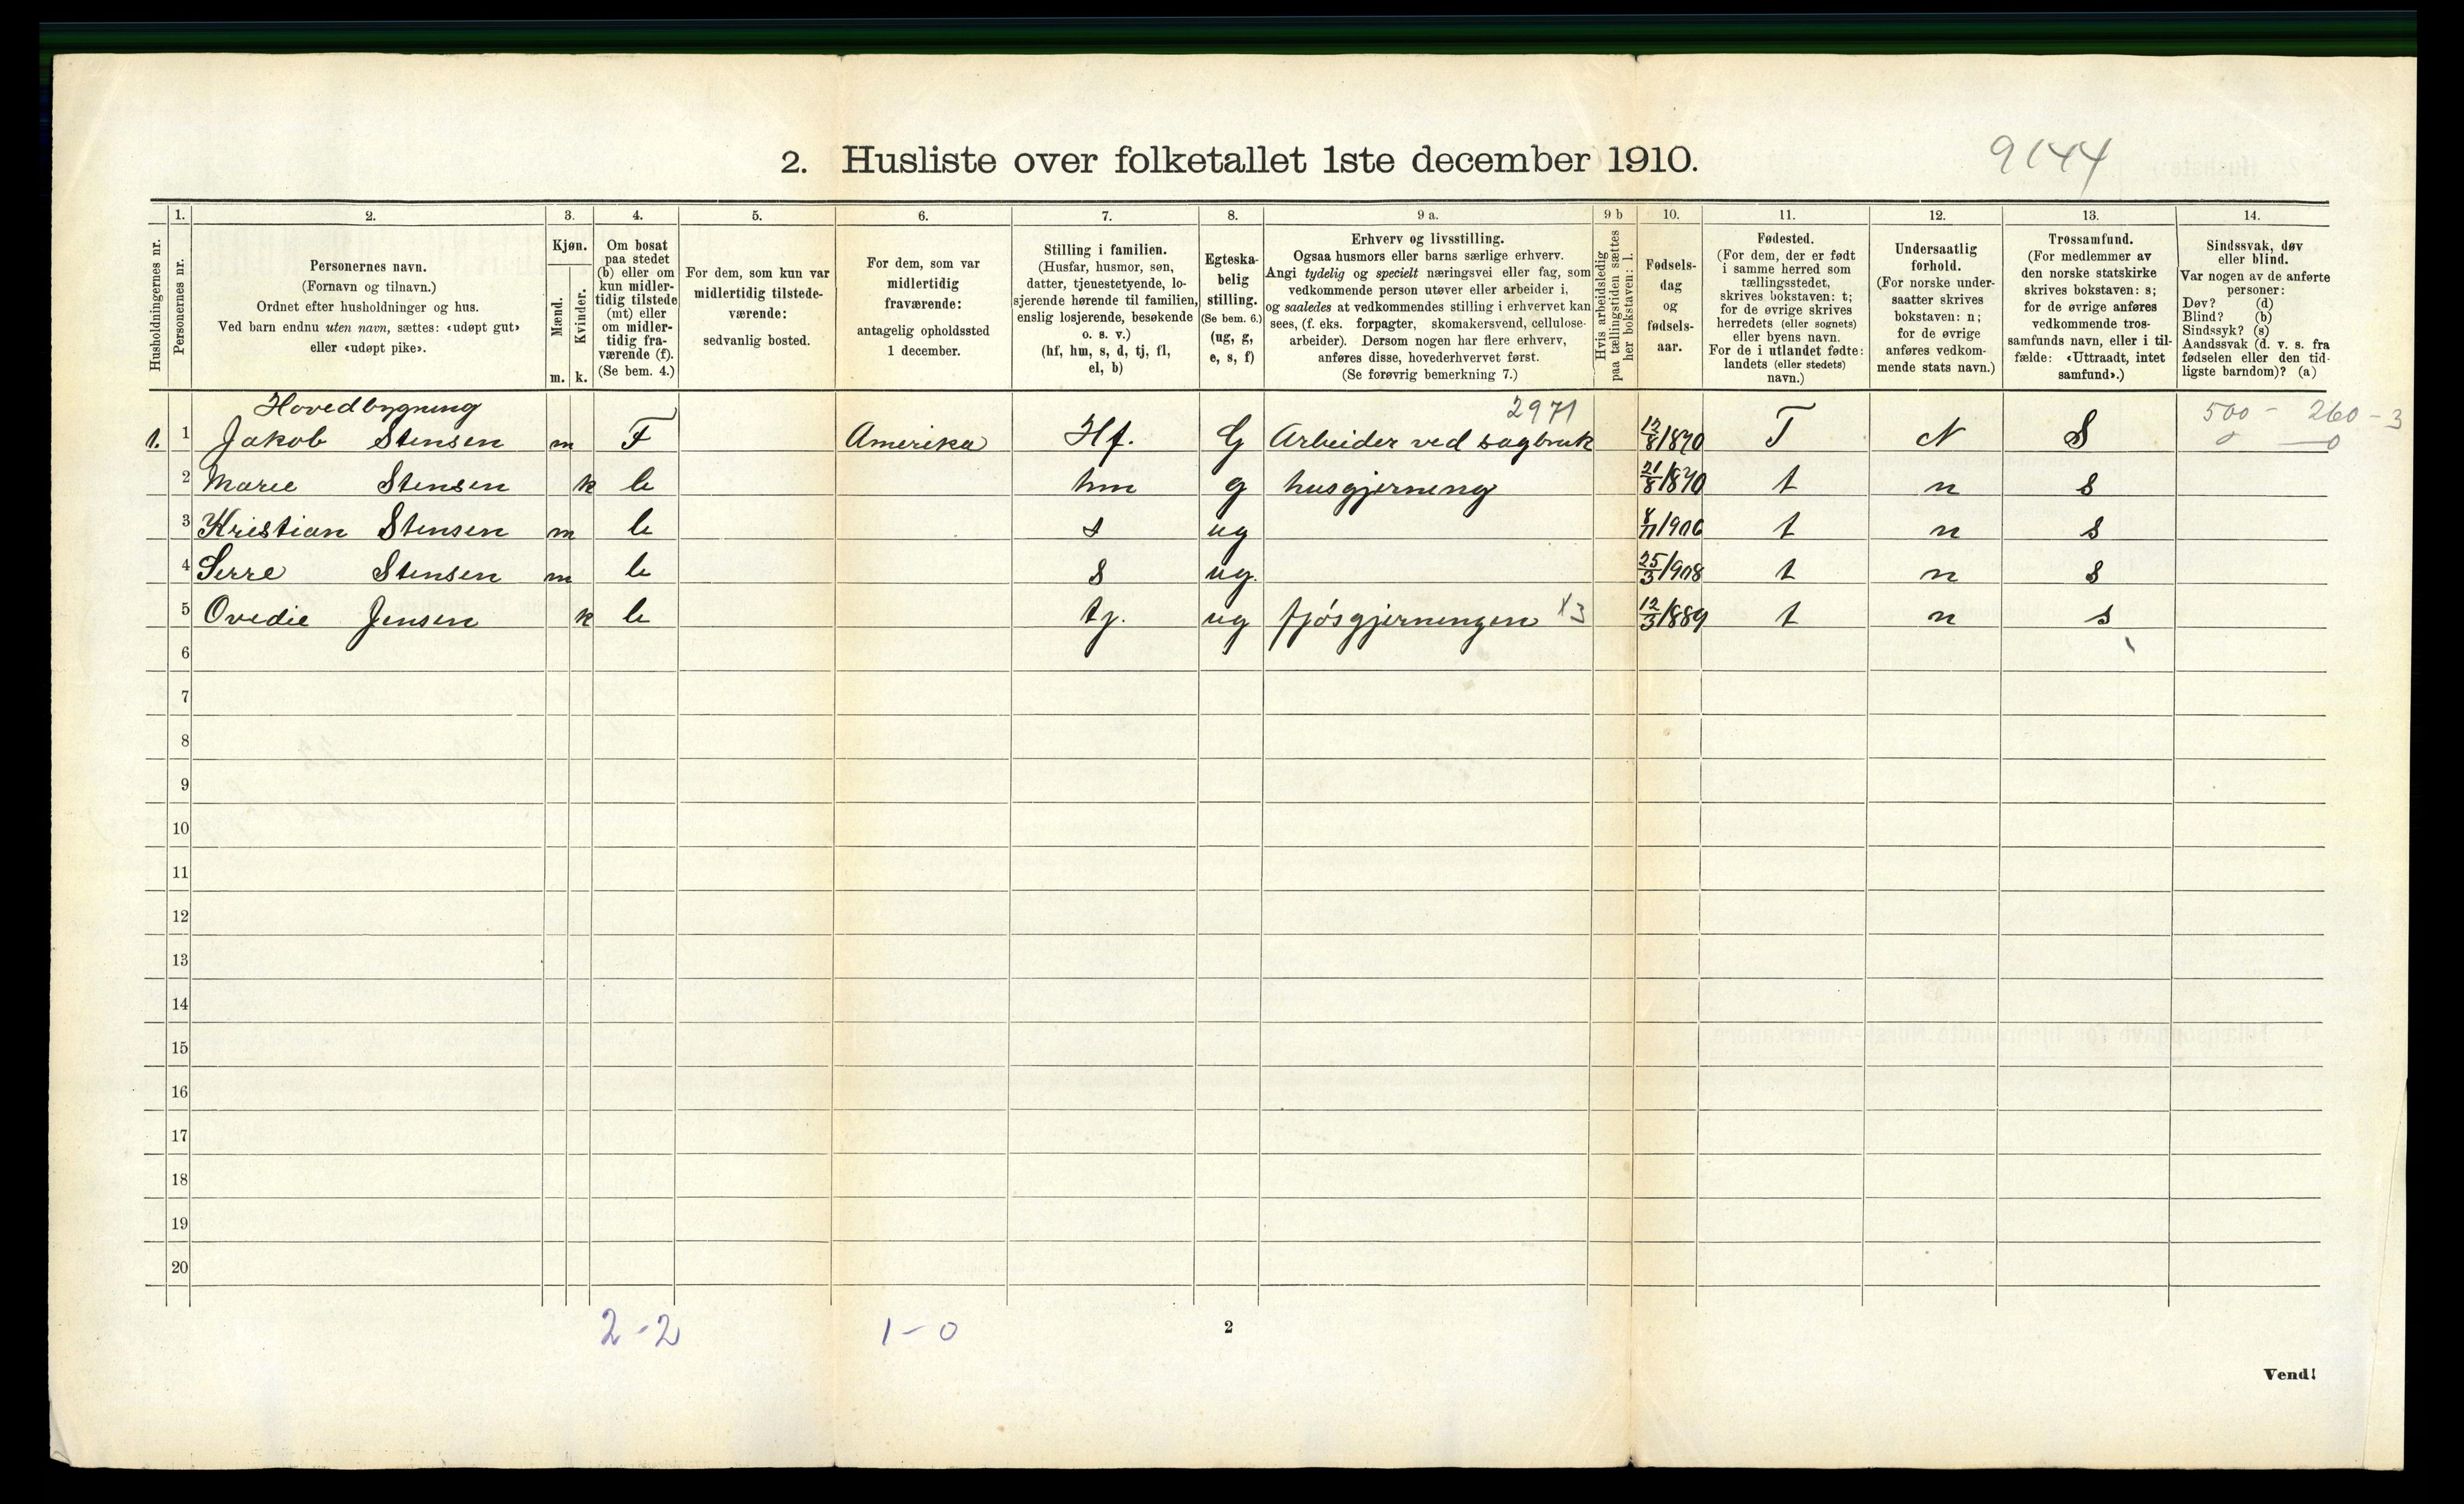 2. Husliste over folketallet 1ste december 1910.
9144
Husholdningernes nr.
1.
Personernes nr.
2.
Personernes navn.
(Fornavn og tilnavn.)
Ordnet efter husholdninger og hus.
Ved barn endnu uten navn, sættes: «udøpt gut»
eller «udøpt pike».
3.
Kjøn.
Mænd.
Kvinder.
m. k.
4.
Om bosat
paa stedet
(b) eller om
kun midler-
tidig tilstede
(mt) eller
om midler-
tidig fra-
værende (f).
(Se bem. 4.)
5.
For dem, som kun var
midlertidig tilstede-
værende:
sedvanlig bosted.
6.
For dem, som var
midlertidig
fraværende:
antagelig opholdssted
1 december.
7.
Stilling i familien.
(Husfar, husmor, søn,
datter, tjenestetyende, lo-
sjerende hørende til familien,
enslig losjerende, besøkende
o. s. v.)
(hf, hm, s, d, tj, fl,
el, b)
8.
Egteska-
belig
stilling.
(Se bem. 6.)
(ug, g,
e, s, f)
9 a.
Erhverv og livsstilling.
Ogsaa husmors eller barns særlige erhverv.
Angi tydelig og specielt næringsvei eller fag, som
vedkommende person utøver eller arbeider i,
og saaledes at vedkommendes stilling i erhvervet kan
sees, (f. eks. forpagter, skomakersvend, cellulose-
arbeider). Dersom nogen har flere erhverv,
anføres disse, hovederhvervet først.
(Se forøvrig bemerkning 7.)
9 b
Hvis arbeidsledig
paa tællingstiden sættes
her bokstaven: l.
10.
Fødsels-
dag
og
fødsels-
aar.
11.
Fødested.
(For dem, der er født
i samme herred som
tællingsstedet,
skrives bokstaven: t;
for de øvrige skrives
herredets (eller sognets)
eller byens navn.
For de i utlandet fødte:
landets (eller stedets)
navn.)
12.
Undersaatlig
forhold.
(For norske under-
saatter skrives
bokstaven: n;
for de øvrige
anføres vedkom-
mende stats navn.)
13.
Trossamfund.
(For medlemmer av
den norske statskirke
skrives bokstaven: s;
for de øvrige anføres
vedkommende tros-
samfunds navn, eller i til-
fælde: «Uttraadt, intet
samfund».)
14.
Sindssvak, døv
eller blind.
Var nogen av de anførte
personer:
Døv? (d)
Blind? (b)
Sindssyk? (s)
Aandssvak (d. v. s. fra
fødselen eller den tid-
ligste barndom)? (a)
Hovedbygning 2971 500 - 260 - 3
1. 1 Jakob Stensen m F Amerika Hf. G Arbeider ved sagbruk 12/8 1870 T N S 0 0
2 Marie Stensen k b hm g husgjerning 21/8 1870 t n s
3 Kristian Stensen m b s ug 8/11 1906 t n s
4 Stensen m b s ug. 25/3 1908 t n s
5 Ovedie Jensen k b tj. ug fjøsgjerningen X3 12/3 1889 t n s
6
7
8
9
10
11
12
13
14
15
16
17
18
19
20
2-2 1-0 2
Vend!